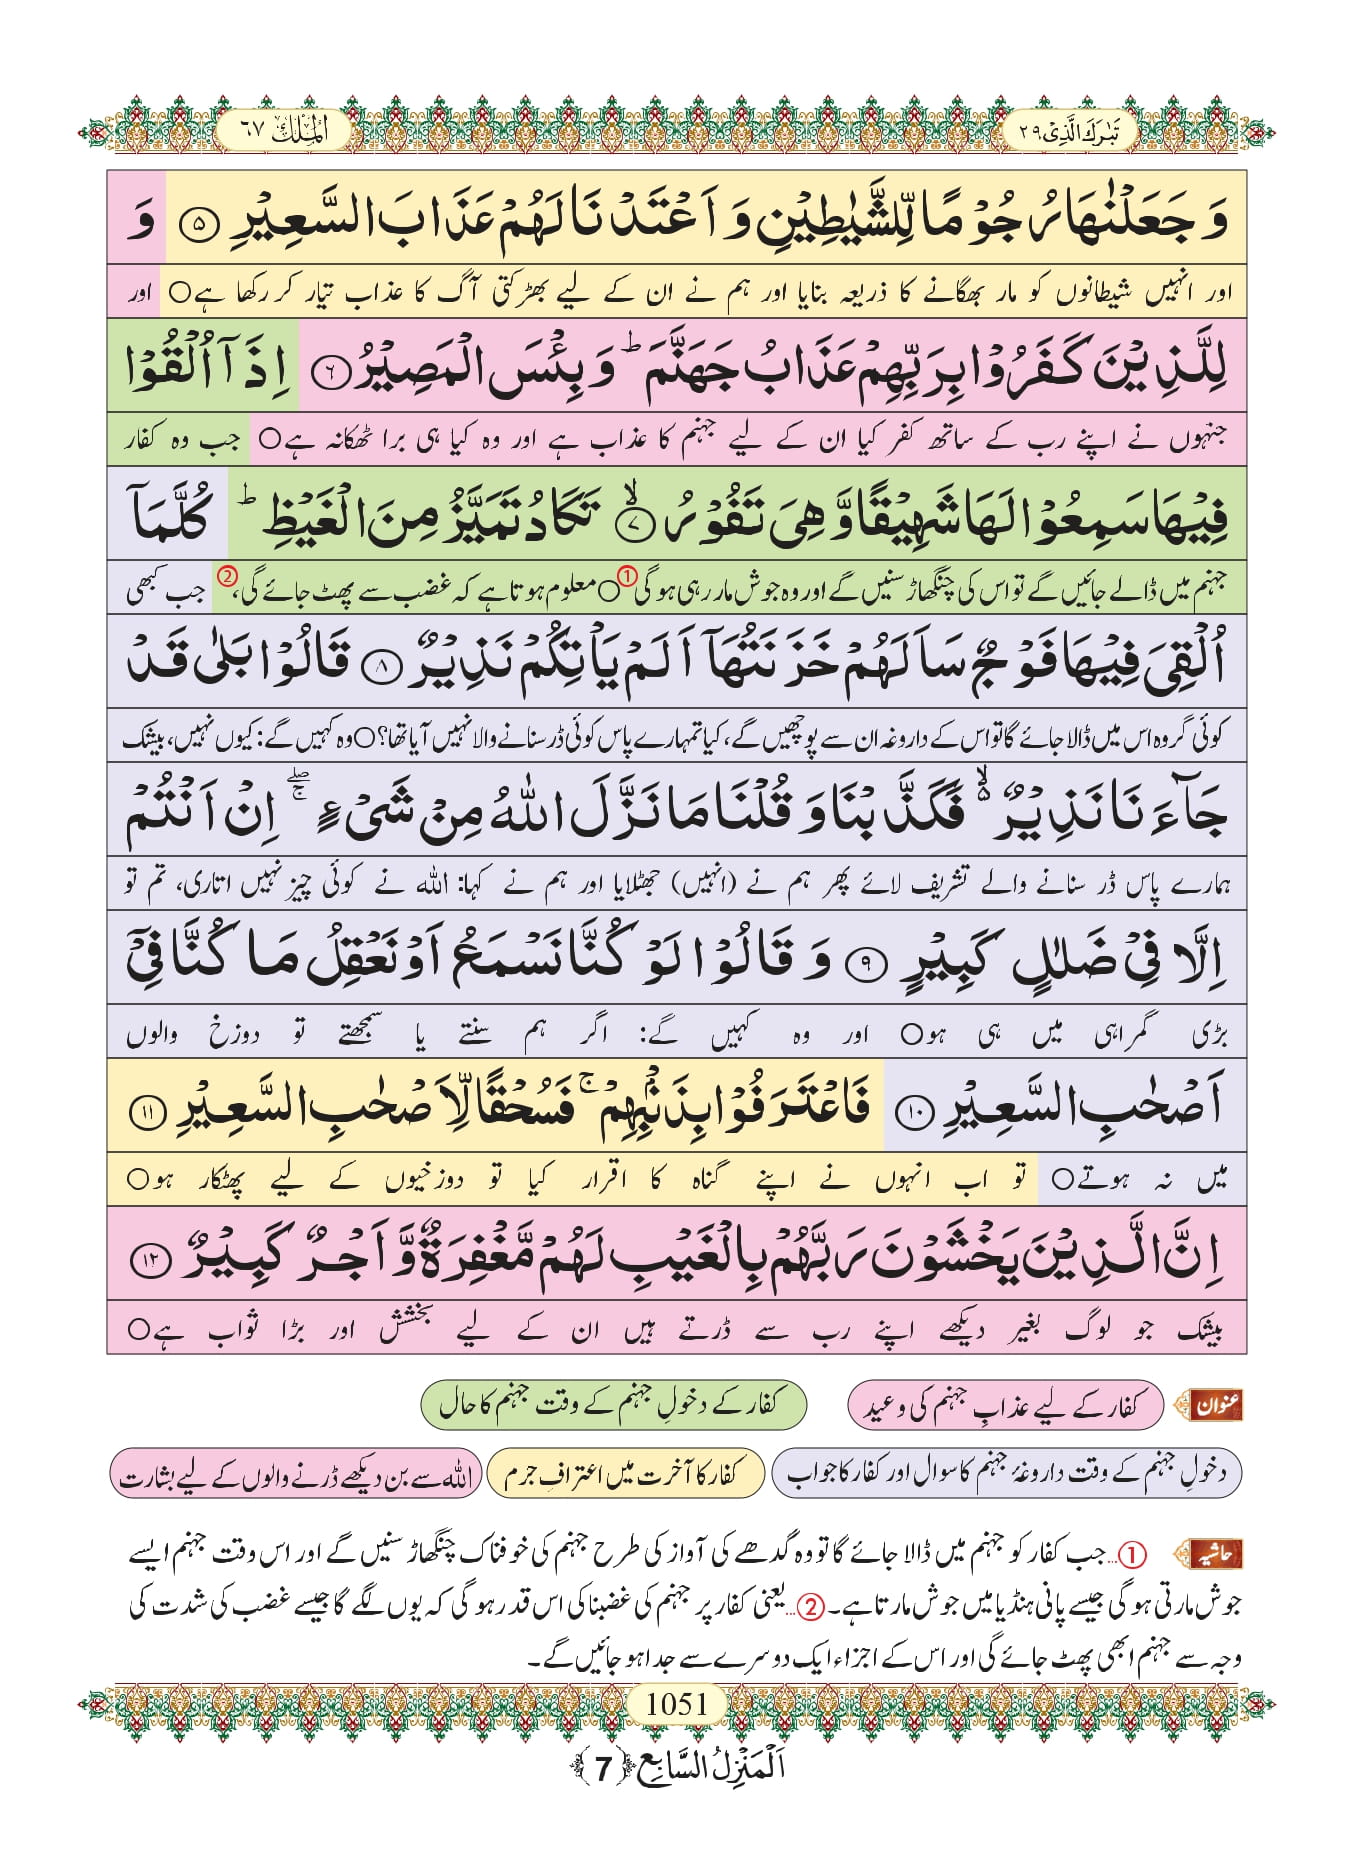 تَبٰرَكَ الَّذِیْ ٢٩
اَلْمُلْك ٦٧
وَ جَعَلْنٰهَا رُجُوْمًا لِّلشَّیٰطِیْنِ وَ اَعْتَدْنَا لَهُمْ عَذَابَ السَّعِیْرِ ۝۵ وَ
اور انہیں شیطانوں کو مار بھگانے کا ذریعہ بنایا اور ہم نے ان کے لیے بھڑکتی آگ کا عذاب تیار کر رکھا ہے○ اور
لِلَّذِیْنَ كَفَرُوْا بِرَبِّهِمْ عَذَابُ جَهَنَّمَؕ وَ بِئْسَ الْمَصِیْرُ ۝۶ اِذَاۤ اُلْقُوْا
جنہوں نے اپنے رب کے ساتھ کفر کیا ان کے لیے جہنم کا عذاب ہے اور وہ کیا ہی برا ٹھکانہ ہے○ جب وہ کفار
فِیْهَا سَمِعُوْا لَهَا شَهِیْقًا وَّ هِیَ تَفُوْرُۙ۝۷ تَكَادُ تَمَیَّزُ مِنَ الْغَیْظِؕ كُلَّمَاۤ
جہنم میں ڈالے جائیں گے تو اس کی چنگھاڑ سنیں گے اور وہ جوش مار رہی ہوگی①○ معلوم ہوتا ہے کہ غضب سے پھٹ جائے گی،② جب کبھی
اُلْقِیَ فِیْهَا فَوْجٌ سَاَلَهُمْ خَزَنَتُهَاۤ اَلَمْ یَاْتِكُمْ نَذِیْرٌ ۝۸ قَالُوْا بَلٰى قَدْ
کوئی گروہ اس میں ڈالا جائے گا تو اس کے داروغہ ان سے پوچھیں گے، کیا تمہارے پاس کوئی ڈر سنانے والا نہیں آیا تھا؟○ وہ کہیں گے: کیوں نہیں، بیشک
جَآءَنَا نَذِیْرٌ ۙ۬ فَكَذَّبْنَا وَ قُلْنَا مَا نَزَّلَ اللّٰهُ مِنْ شَیْءٍ ۚۖ اِنْ اَنْتُمْ
ہمارے پاس ڈر سنانے والے تشریف لائے پھر ہم نے (انہیں) جھٹلایا اور ہم نے کہا: اللہ نے کوئی چیز نہیں اتاری، تم تو
اِلَّا فِیْ ضَلٰلٍ كَبِیْرٍ ۝۹ وَ قَالُوْا لَوْ كُنَّا نَسْمَعُ اَوْ نَعْقِلُ مَا كُنَّا فِیْۤ
بڑی گمراہی میں ہی ہو○ اور وہ کہیں گے: اگر ہم سنتے یا سمجھتے تو دوزخ والوں
اَصْحٰبِ السَّعِیْرِ ۝۱۰ فَاعْتَرَفُوْا بِذَنْۢبِهِمْۚ فَسُحْقًا لِّاَصْحٰبِ السَّعِیْرِ ۝۱۱
میں نہ ہوتے○ تو اب انہوں نے اپنے گناہ کا اقرار کیا تو دوزخیوں کے لیے پھٹکار ہو○
اِنَّ الَّذِیْنَ یَخْشَوْنَ رَبَّهُمْ بِالْغَیْبِ لَهُمْ مَّغْفِرَةٌ وَّ اَجْرٌ كَبِیْرٌ ۝۱۲
بیشک جو لوگ بغیر دیکھے اپنے رب سے ڈرتے ہیں ان کے لیے بخشش اور بڑا ثواب ہے○
عنوان کفار کے لیے عذابِ جہنم کی وعید کفار کے دخولِ جہنم کے وقت جہنم کا حال
دخولِ جہنم کے وقت داروغۂ جہنم کا سوال اور کفار کا جواب کفار کا آخرت میں اعترافِ جرم اللہ سے بن دیکھے ڈرنے والوں کے لیے بشارت
حاشیہ ①...جب کفار کو جہنم میں ڈالا جائے گا تو وہ گدھے کی آواز کی طرح جہنم کی خوفناک چنگھاڑ سنیں گے اور اس وقت جہنم ایسے
جوش مارتی ہوگی جیسے پانی ہنڈیا میں جوش مارتا ہے۔②...یعنی کفار پر جہنم کی غضبناکی اس قدر ہوگی کہ یوں لگے گا جیسے غضب کی شدت کی
وجہ سے جہنم ابھی پھٹ جائے گی اور اس کے اجزاء ایک دوسرے سے جدا ہو جائیں گے۔
1051
اَلْمَنْزِلُ السَّابِع ﴿7﴾